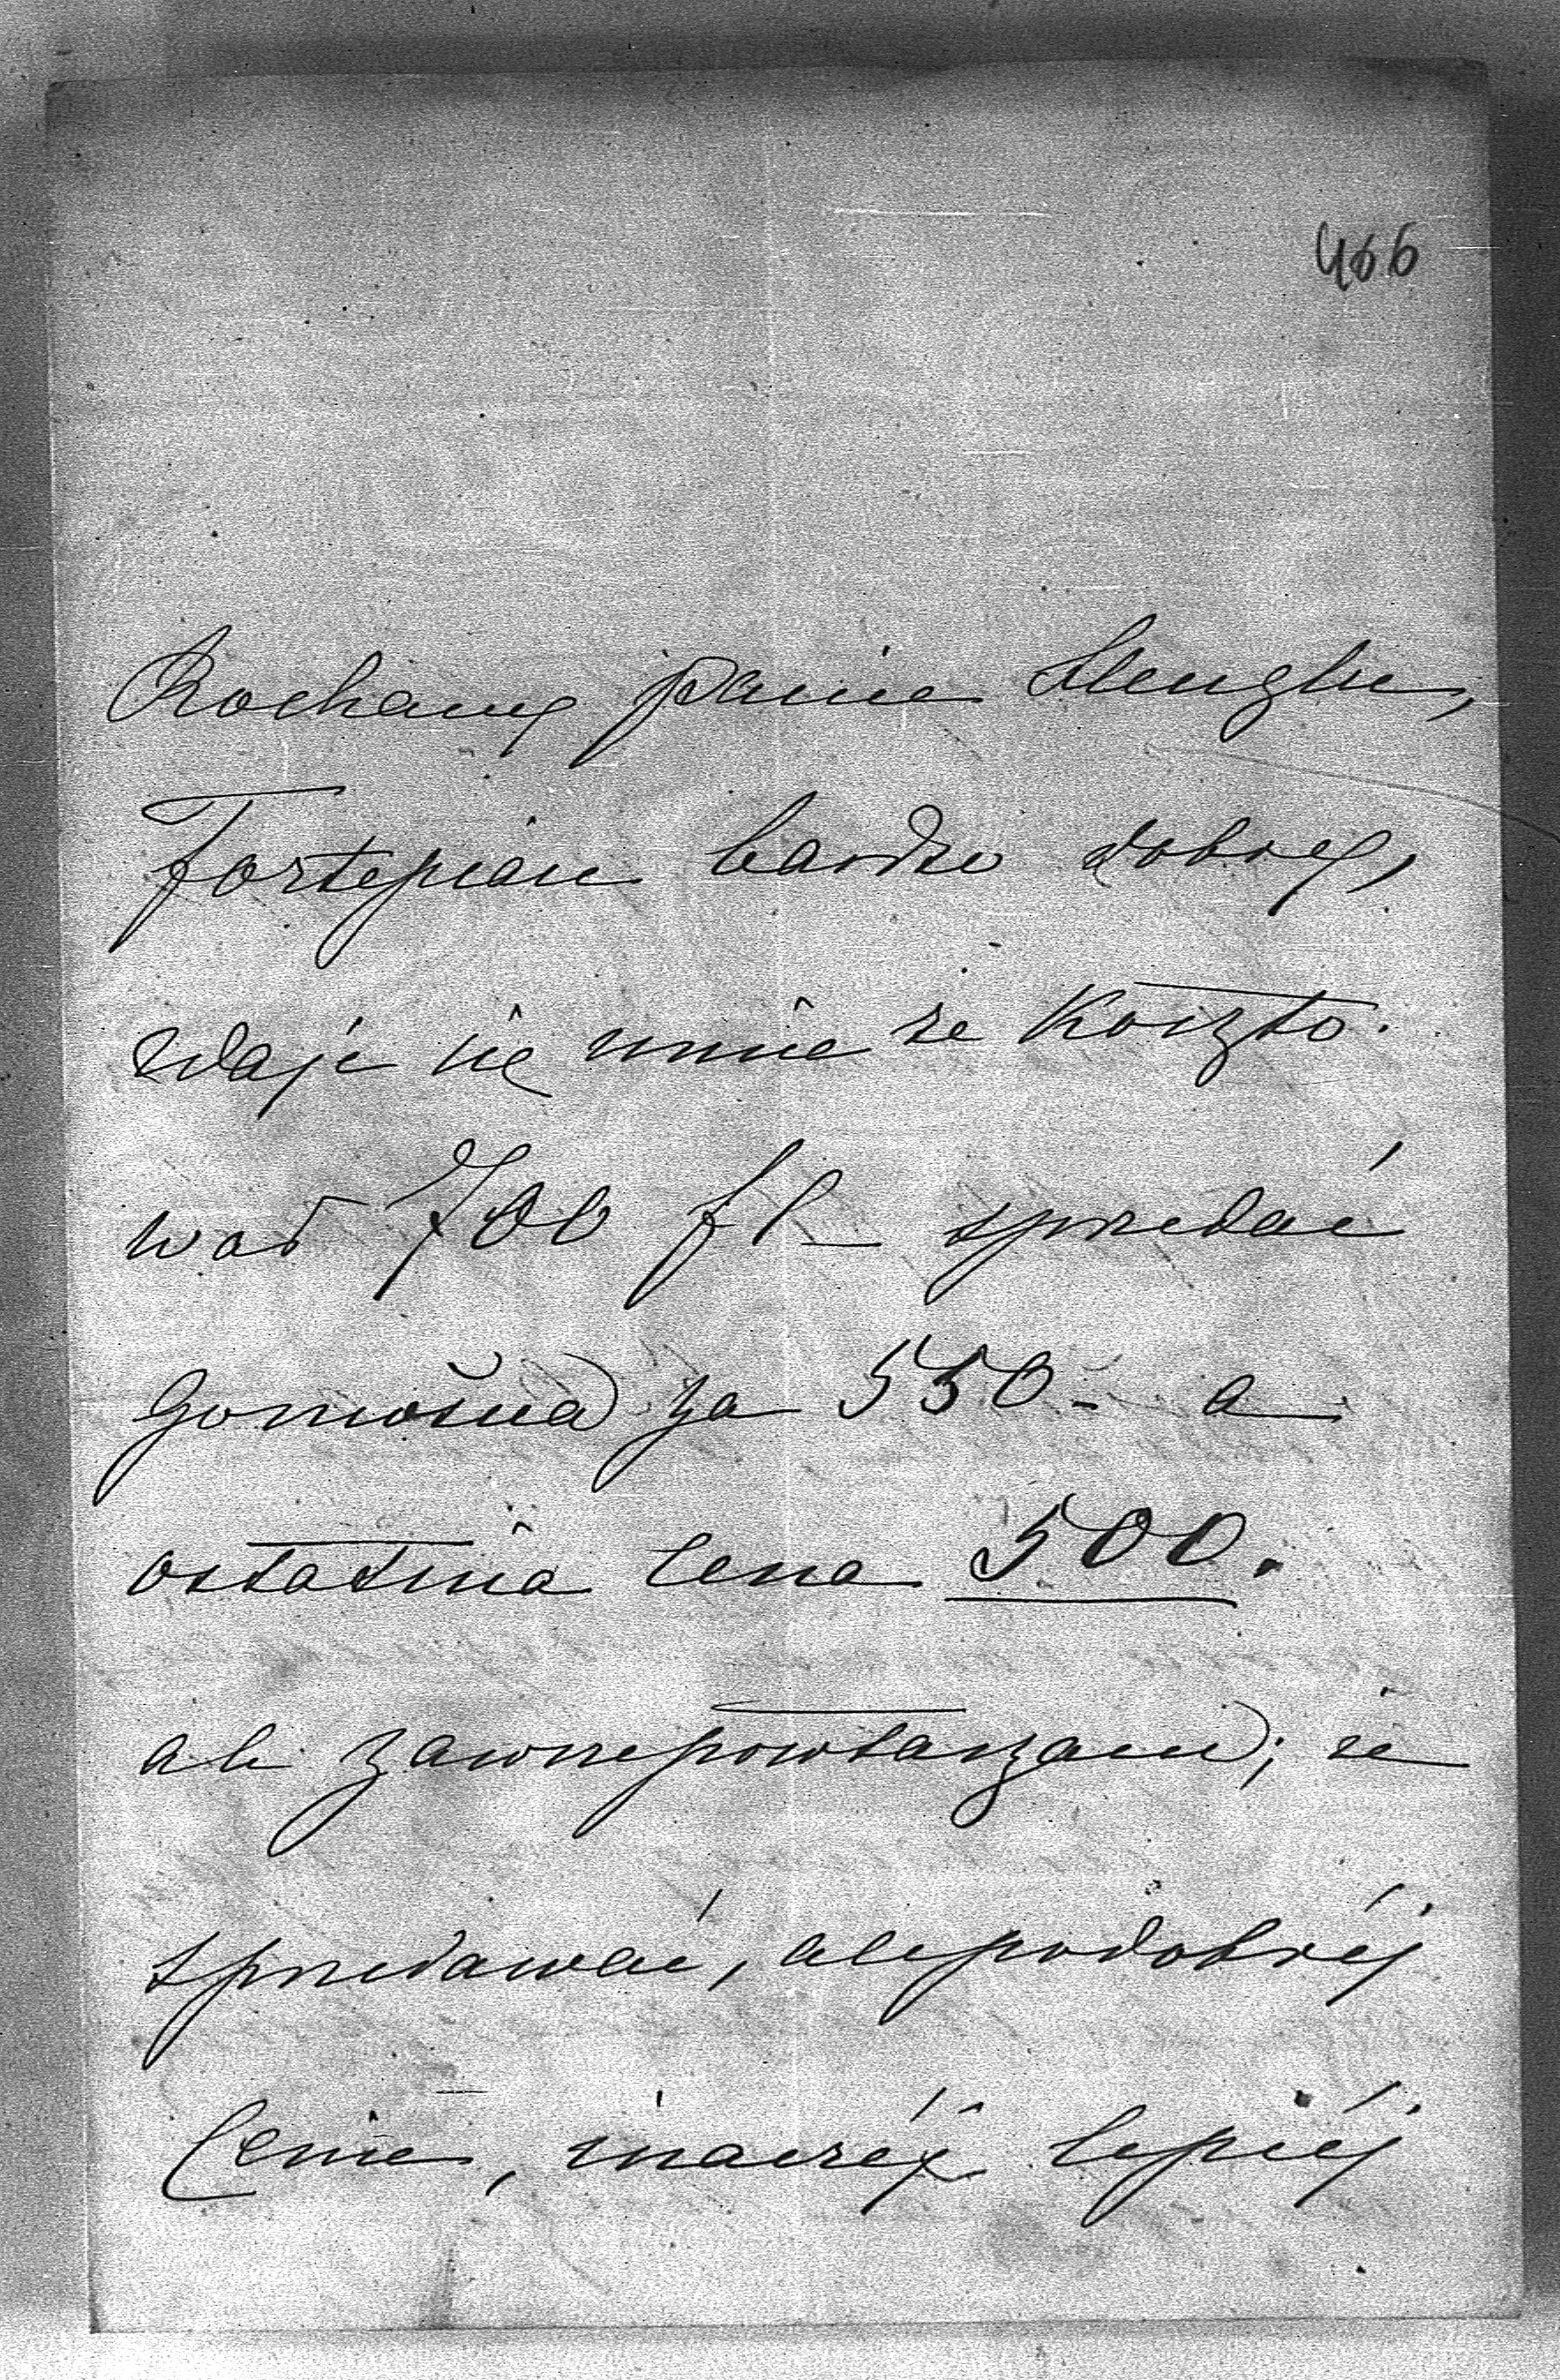 466
Kochany panie Stenzlu,
Fortepian bardzo dobry,
zdaje się mnie że koszto-
wał 700 fl – sprzedać
go można za 550 – a
ostatnia cena 500.
ale zawsze powtarzam; że
sprzedawać, ale po dobréj
Cenie, inaczéj lepiéj